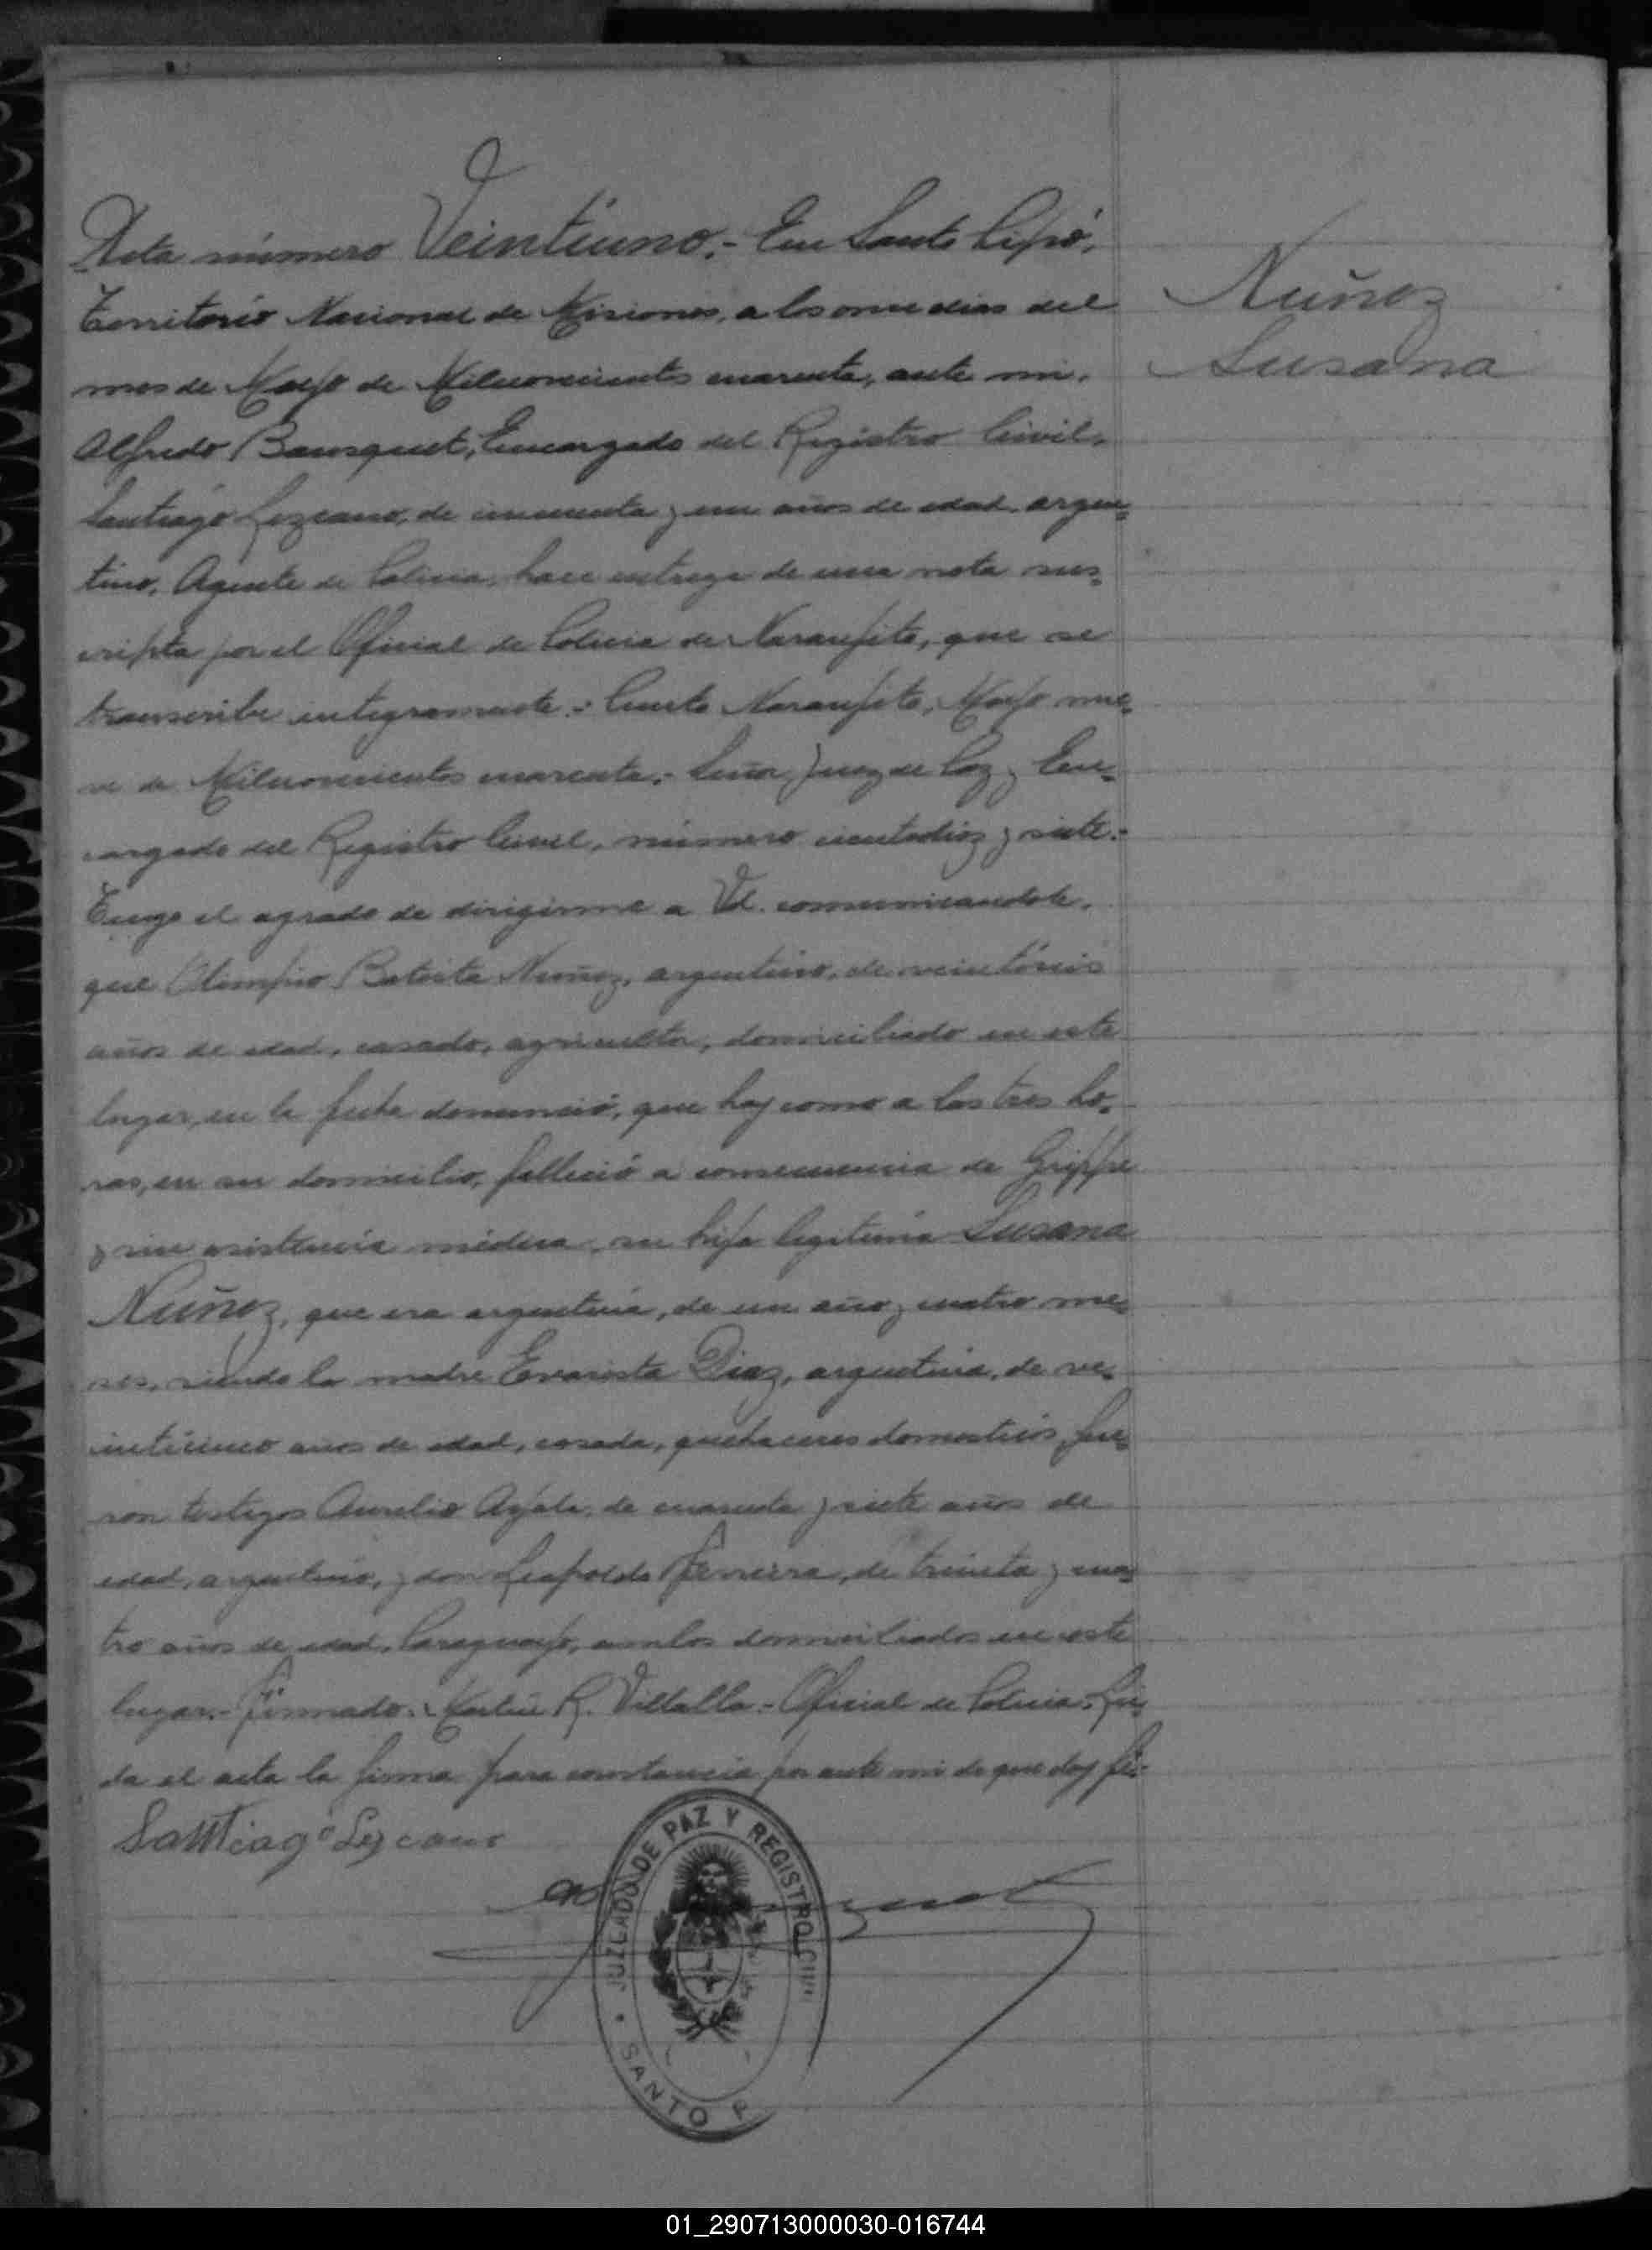 Acta número Veintiuno.- En Santo Pipó,
Territorio Nacional de Misiones, a los once dias del
mes de Mayo de Milnovecientos cuarenta, ante mi,
Alfredo Bousquet, Encargado del Registro Civil,
Santiago Lezcano, de cincuenta y un años de edad, argen-
tino, Agente de Policia, hace entrega de una nota sus-
cripta por el Oficial de Policia de Naranjito, que se
transcribe integramente.- Puerto Naranjito, Mayo nue-
ve de Milnovecientos cuarenta.- Señor Juez de Paz y En-
cargado del Registro Civil, número cientodiez y siete.-
Tengo el agrado de dirigirme a Vd. comunicandole,
que Olimpio Batista Nuñez, argentino, de veintiseis
años de edad, casado, agricultor, domiciliado en este
lugar, en la fecha denunció, que hoy como a las tres ho-
ras, en su domicilio, falleció a consecuencia de Grippe
y sin asistencia médica, su hija legitima Susana
Nuñez, que era argentina, de un año y cuatro me-
ses, siendo la madre Evarista Diaz, argentina, de ve-
inticinco años de edad, casada, quehaceres domesticos, fue-
ron testigos Aurelio Ayala, de cuarenta y siete años de
edad, argentino, y don Leopoldo Ferreira, de treinta y cua-
tro años de edad, Paraguayo, ambos domiciliados en este
lugar.- Firmado: Martin R. Villalla.- Oficial de Policia.- Lei-
da el acta la firma para constancia por ante mi de que doy fé.-
Santiago Lezcano
JUZGADO DE PAZ Y REGISTRO CIVIL
SANTO P
Nuñez
Susana
01_290713000030-016744